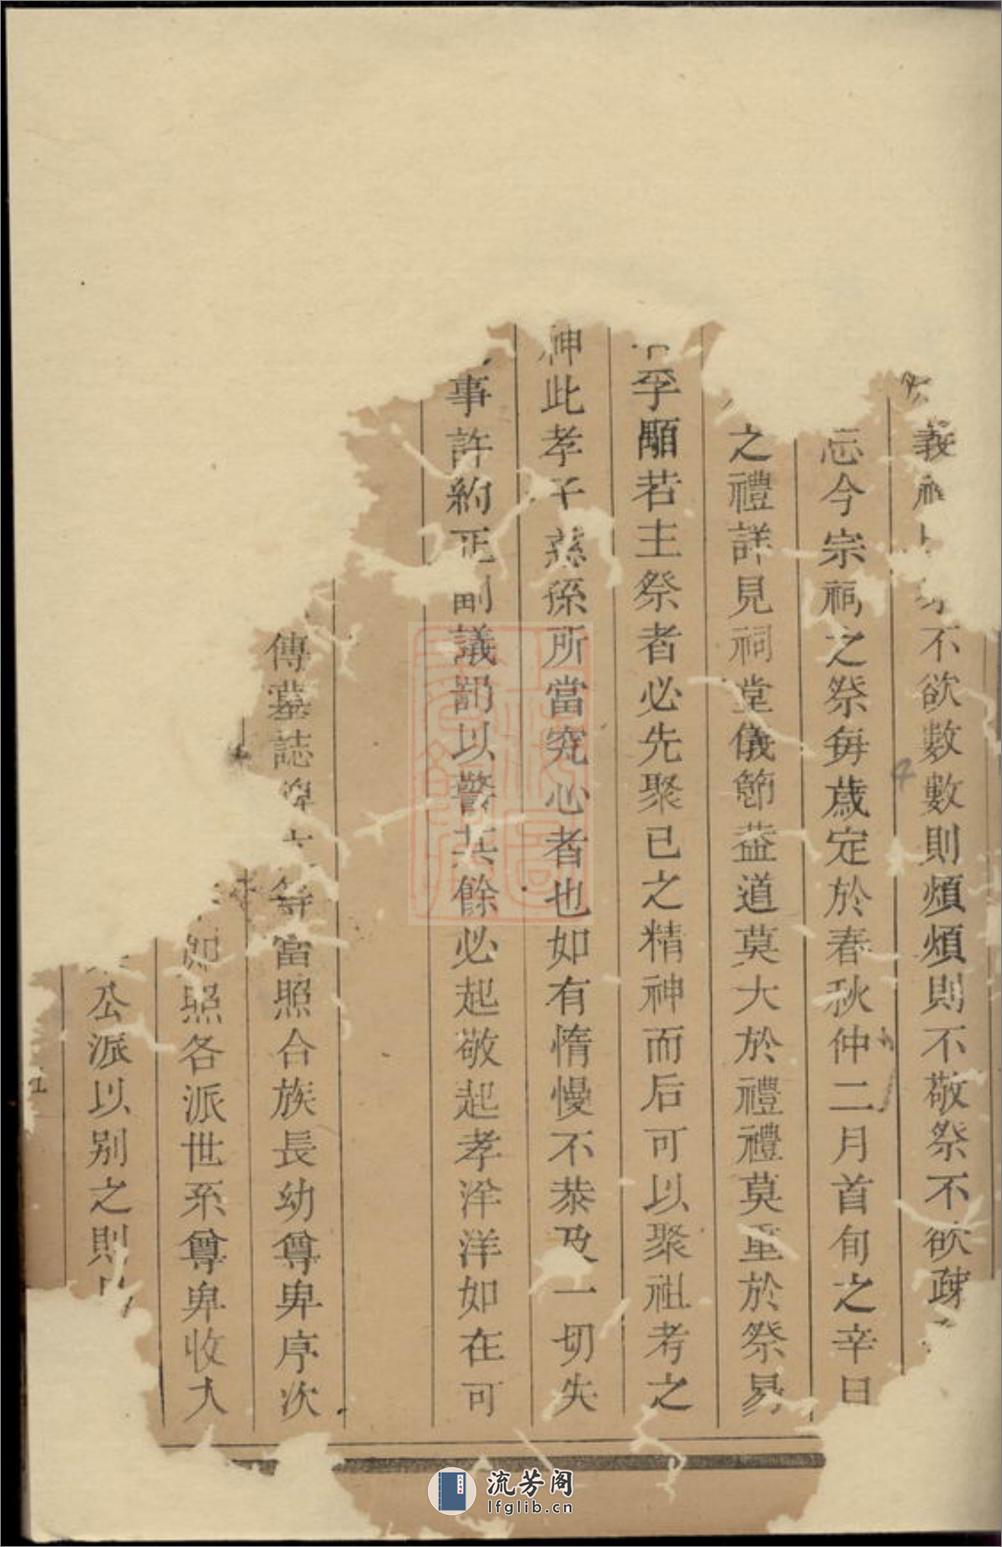 義不欲數數則煩煩則不敬祭不欲疎
忘今宗祠之祭每歲定於春秋仲二月首旬之辛日
之禮詳見祠堂儀節蓋道莫大於禮禮莫重於祭易
孚顒若主祭者必先聚已之精神而后可以聚祖考之
神此孝子慈孫所當究心者也如有惰慢不恭及一切失
事許約正副議罰以警其餘必起敬起孝洋洋如在可
傳墓誌等當照合族長幼尊卑序次
卽照各派世系尊卑收入
公派以别之則
流芳阁
lfglib.cn